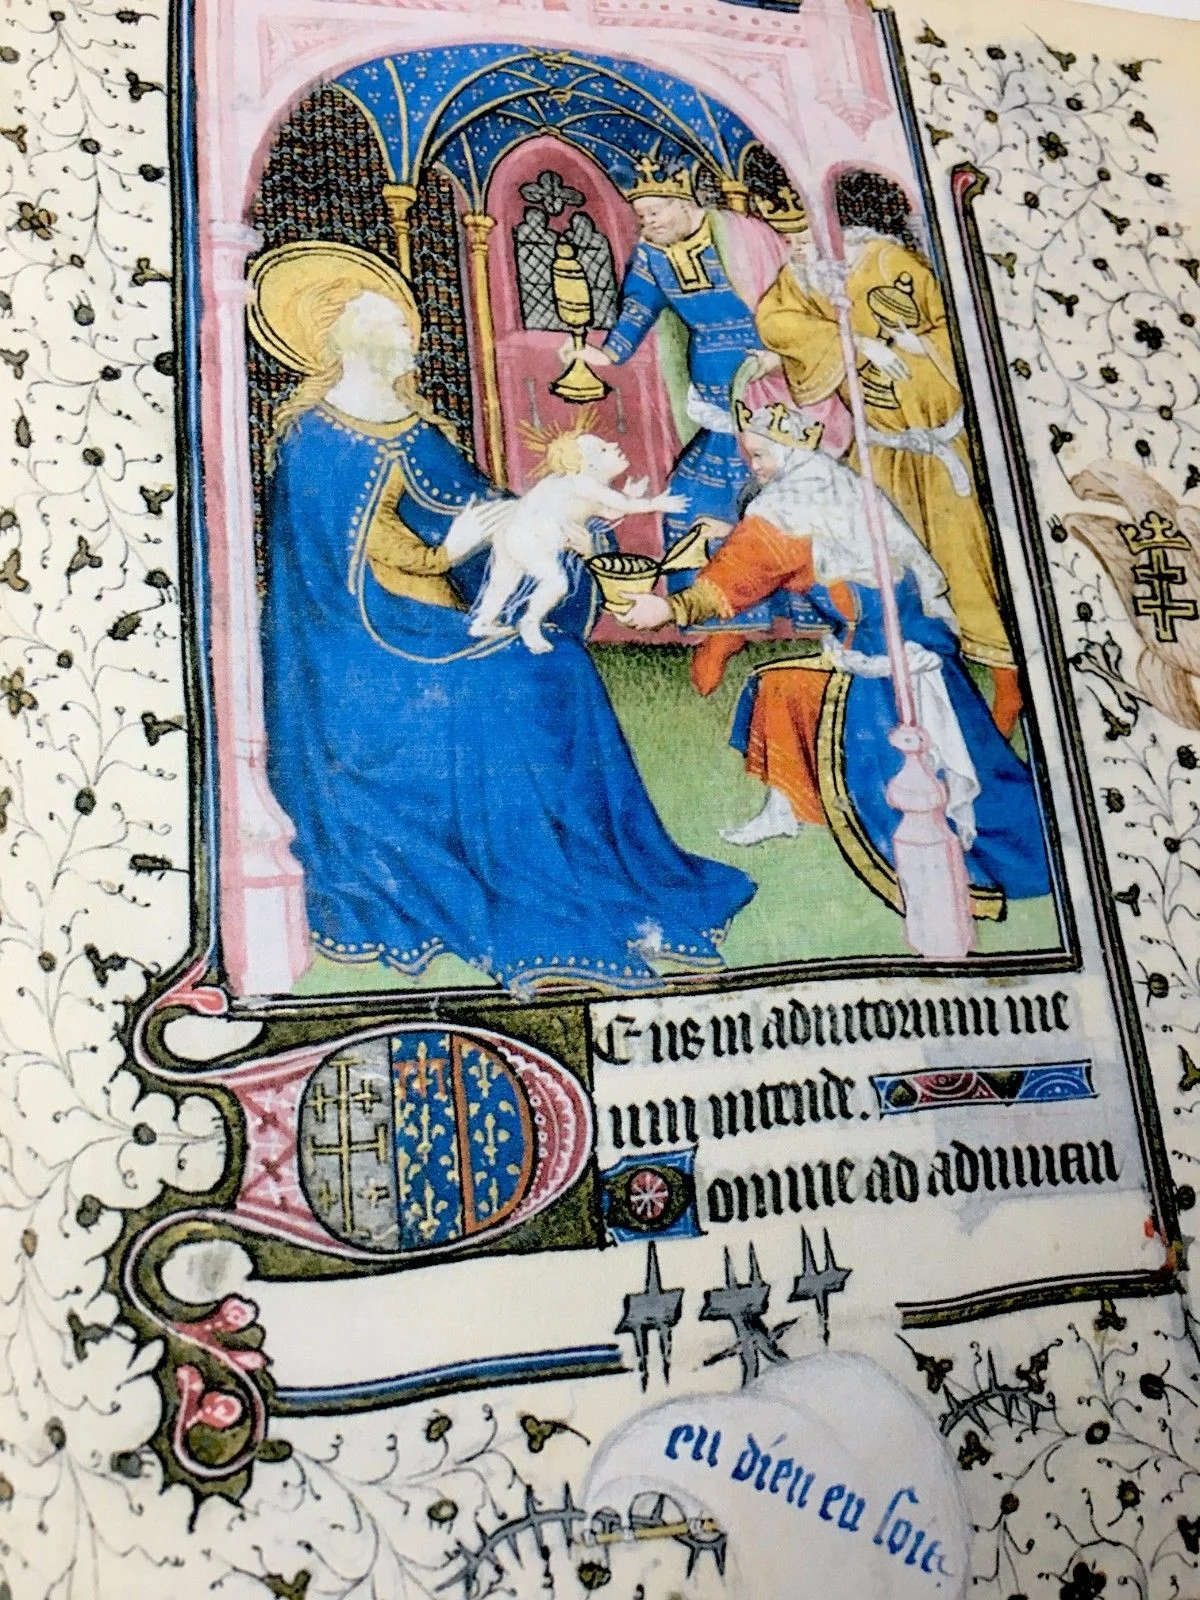 Eus in adiutorium me
um intende.
omine ad adiuuan
en dieu en soit